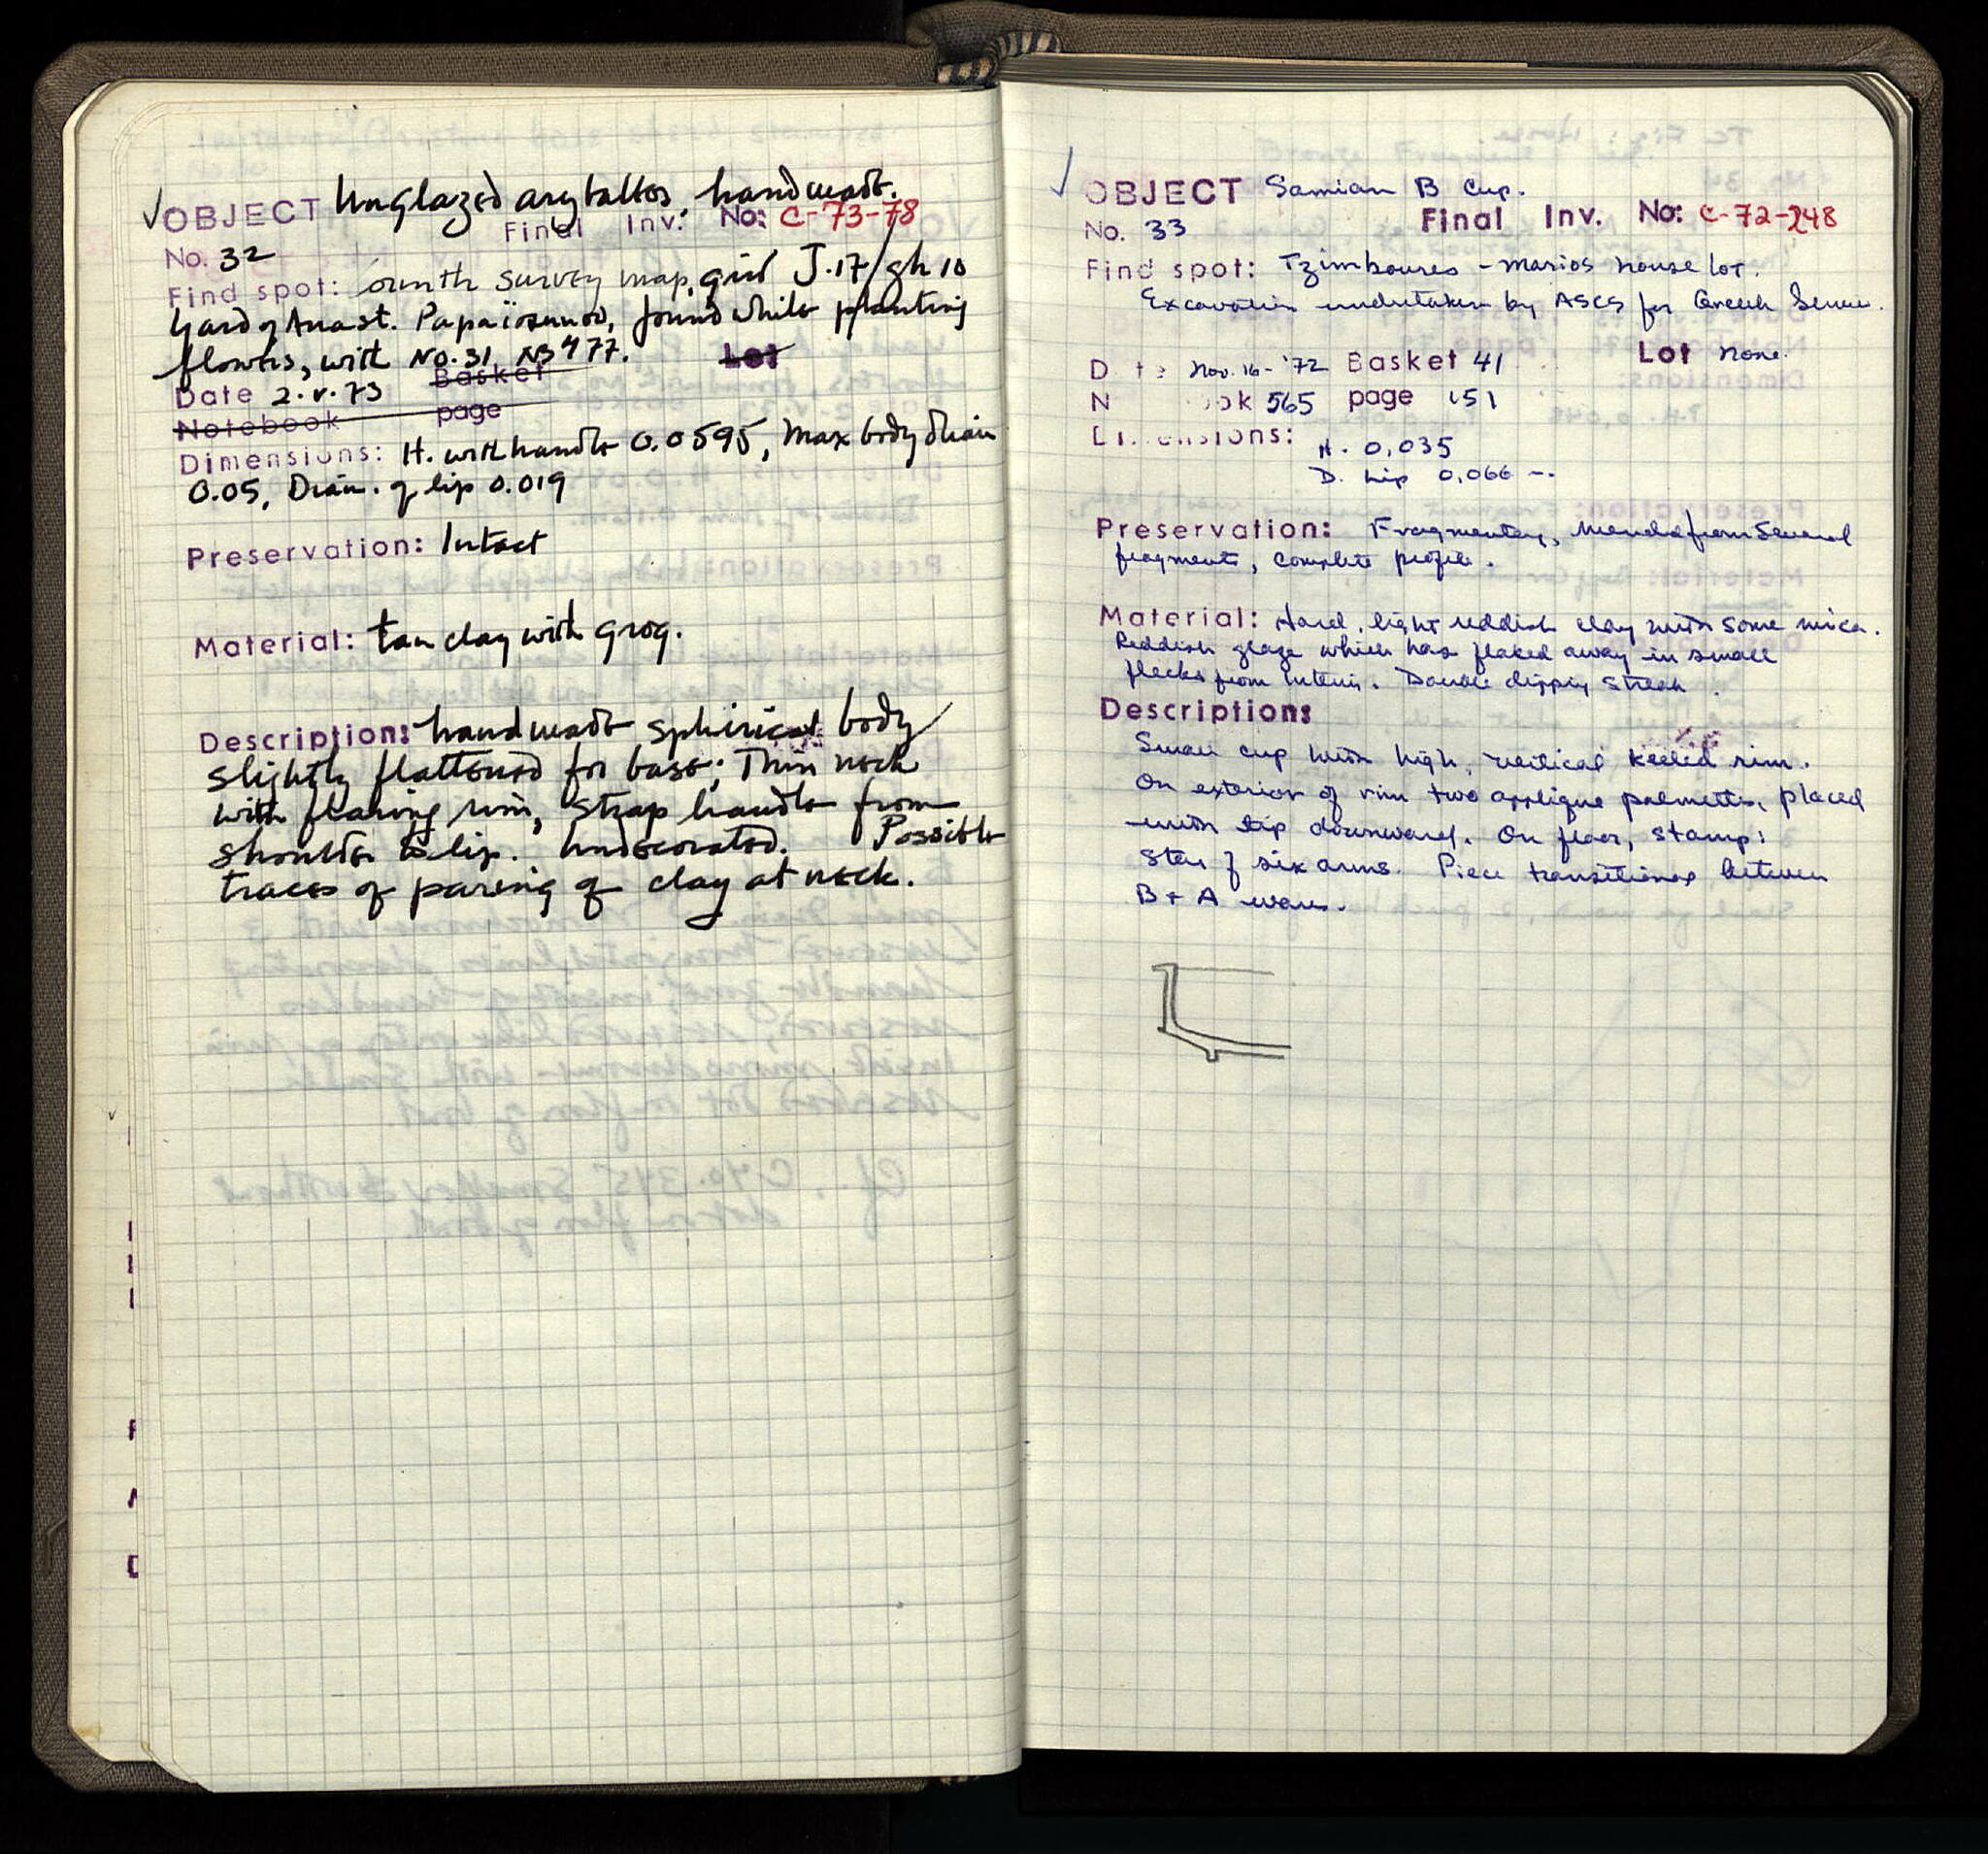 ✓ OBJECT Unglazed aryballos, handmade.
Final Inv. No: C-73-78
No. 32
Find spot: Corinth survey map, grid J.17/gh 10
Yard of Anast. Papaïoannou, found while planting
flowers, with No. 31, NB 477. Lot
Date 2.V.73 Basket
Notebook page
Dimensions: H. with handle 0.0595, Max body diam
0.05, Diam. of lip 0.019
Preservation: Intact
Material: tan clay with grog.
Description: handmade spherical body
slightly flattened for base; Thin neck
with flaring rim, strap handle from
shoulder to lip. Undecorated. Possible
traces of paring of clay at neck.
✓ OBJECT Samian B Cup.
No. 33 Final Inv. No: C-72-248
Find spot: Tzimboures - Marios house lot.
Excavation undertaken by ASCS for Greek Service.
D te Nov. 16 - '72 Basket 41 Lot none.
N ok 565 page 151
Di ensions: H. 0,035
D. Lip 0,066 --
Preservation: Fragmentary, Mended from Several
fragments, complete profile.
Material: Hard, light reddish clay with some mica.
Reddish glaze which has flaked away in small
flecks from interior. Double dipping streak.
Description:
Small cup with high, vertical keeled rim.
On exterior of rim two applique palmettes, placed
with tip downward. On floor, stamp:
Star of six arms. Piece transitional between
B + A ware.